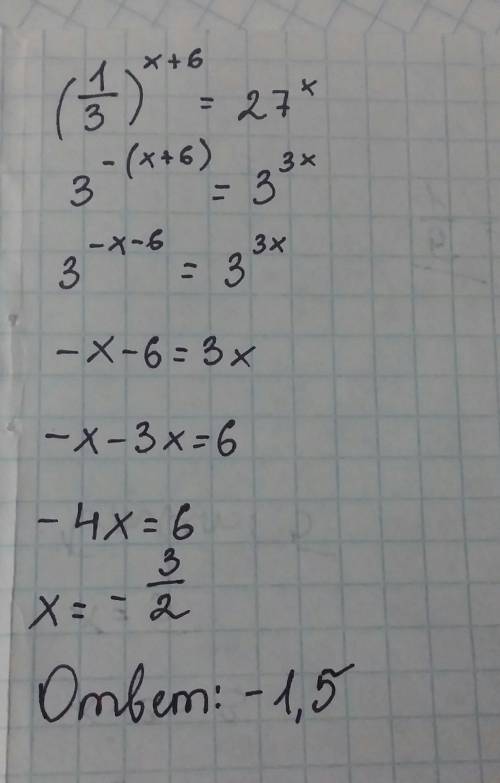 (1/3)^(x+6) = 27^x
3^(-(x+6)) = 3^(3x)
3^(-x-6) = 3^(3x)
-x-6=3x
-x-3x=6
-4x=6
x=-3/2
Ответ: -1,5